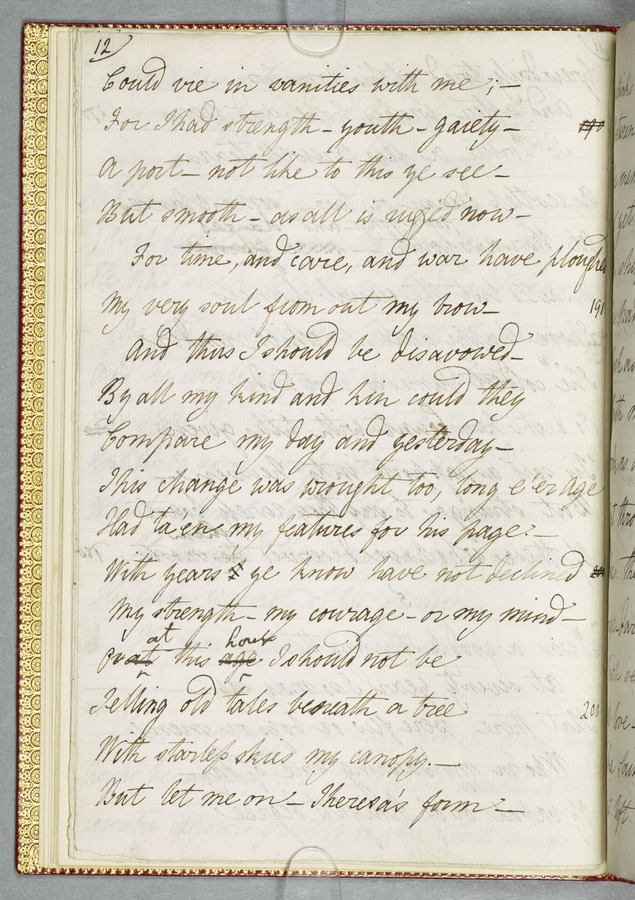 12
Could vie in vanities with me ; —
For I had strength — youth — gaiety —
A port — not like to this ye see —
But smooth — as all is rugged now —
For time, and care, and war have ploughed
My very soul from out my brow — 191
And thus I should be disavowed —
By all my kind and kin could they
Compare my day and yesterday —
This change was wrought too, long e'er age
Had ta'en my features for his page. —
With years ye know have not declined
My strength — my courage — or my mind —
Or at this hour I should not be
Telling old tales beneath a tree 200
With starless skies my canopy. —
But let me on — Theresa's form —